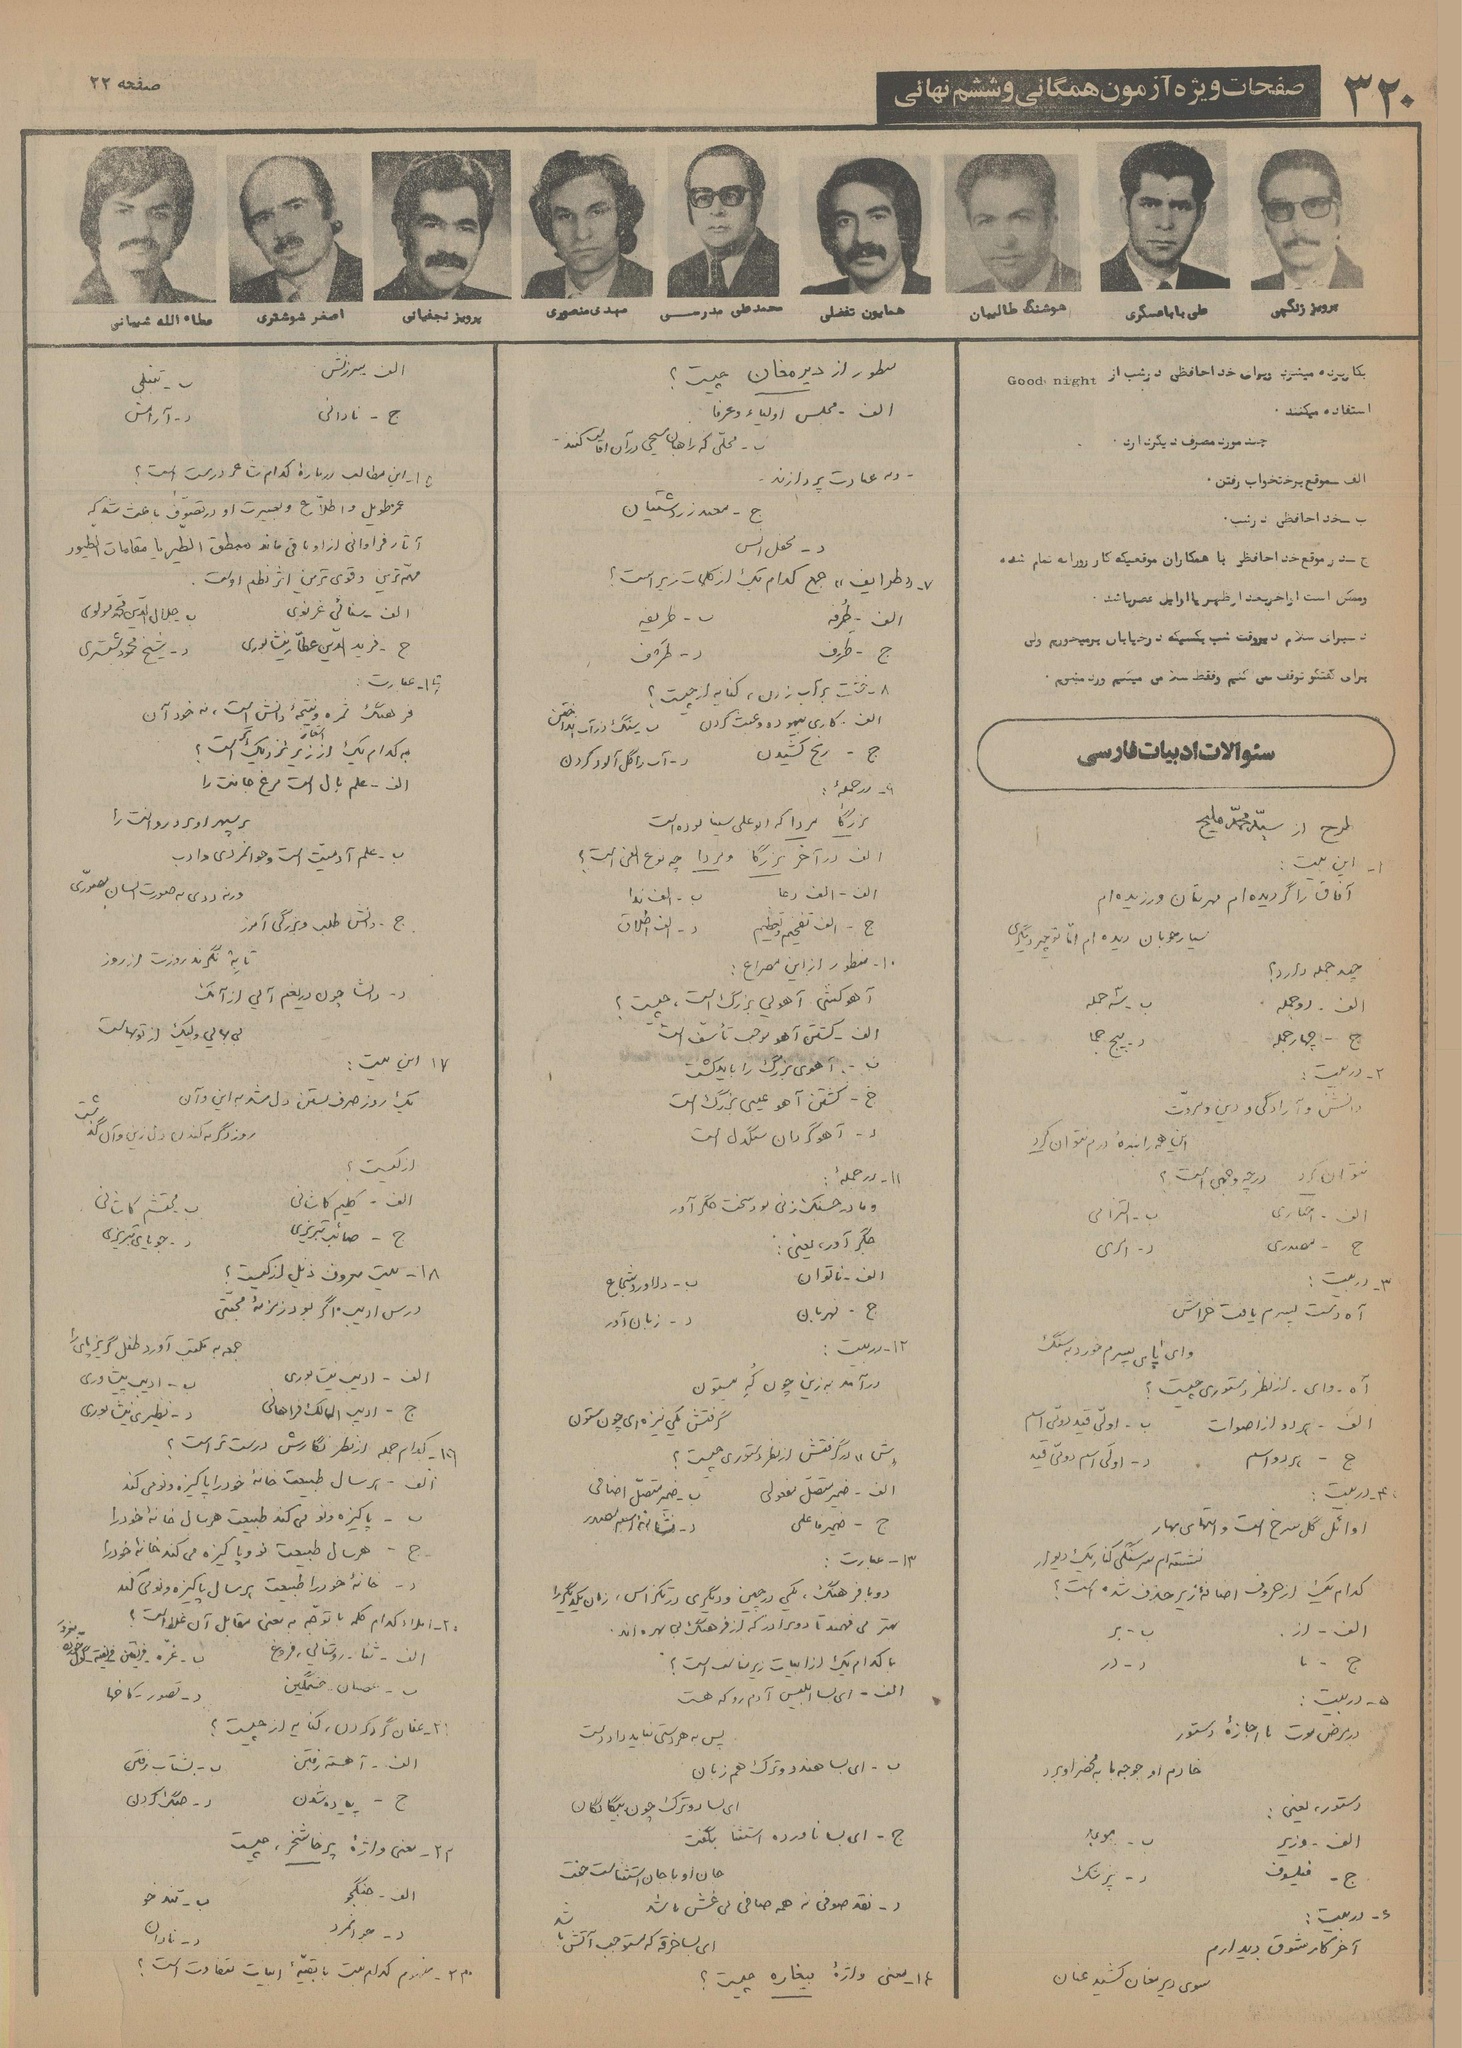 ۳۲۰
صفحات ویژه آزمون همگانی و ششم نهائی
صفحه ۲۲
پرویز زنگهی
علی باباعسگری
هوشنگ طالبیان
همایون تفضلی
محمدعلی مدرسی
مهدی منصوری
پرویز نجفیانی
اصغر شوشتری
عطاء الله شیبانی
بکاربرده میشود وبرای خداحافظی درشب از Good night
استفاده میکنند.
چند مورد مصرف دیگر دارد.
الف - موقع برختخواب رفتن.
ب - خداحافظی درشب.
ج - در موقع خداحافظی با همکاران موقعیکه کار روزانه تمام شده
وممکن است اواخربعد از ظهر یا اوایل عصرباشد.
د - برای سلام دیروقت شب بکسیکه درخیابان برمیخوریم ولی
برای گفتگو توقف نمی کنیم وفقط سلام می کنیم ورد میشویم.
سئوالات ادبیات فارسی
طرح از سیدمحمد ملیح
۱- این بیت:
آفاق را گردیده ام مهر بتان ورزیده ام
بسیار خوبان دیده ام امّا تو چیز دیگری
چند جمله دارد؟
الف - دو جمله
ب - سه جمله
ج - چهار جمله
د - پنج جمله
۲- در بیت:
دانش و آزادگی و دین و مروّت
این همه را بندهٔ درم نتوان کرد
نتوان کرد در چه وجهی است؟
الف - اخباری
ب - التزامی
ج - مصدری
د - امری
۳- در بیت:
آه دست پسرم یافت خراش
وای پای پسرم خورد به سنگ
آه - وای - از نظر دستوری چیست؟
الف - هر دو از اصوات
ب - اولی قید دومی اسم
ج - هر دو اسم
د - اولی اسم دومی قید
۴- در بیت:
اوائل گل سرخ است و انتهای بهار
نشسته ام سر سنگی کنار یک دیوار
کدام یک از حروف اضافهٔ زیر حذف شده است؟
الف - از
ب - بر
ج - با
د - در
۵- در بیت:
در مرض موت با اجازهٔ دستور
خادم او جوجه با به محضر او برد
دستور، یعنی:
الف - وزیر
ب - موبد
ج - فیلسوف
د - پزشک
۶- در بیت:
آخر کار شوق دیدارم
سوی دیر مغان کشید عنان
منظور از دیر مغان چیست؟
الف - مجلس اولیاء و عرفا
ب - محلّی که راهبان مسیحی در آن اقامت کنند
و به عبادت پردازند.
ج - معبد زردشتیان
د - محفل انس
۷- «طرایف» جمع کدام یک از کلمات زیر است؟
الف - طُرفه
ب - طریفه
ج - طَرَف
د - طَرْف
۸- خشت بر آب زدن، کنایه از چیست؟
الف - کاری بیهوده و عبث کردن
ب - سنگ در آب انداختن
ج - رنج کشیدن
د - آب را گل آلود کردن
۹- در جمله:
بزرگا مردا که ابوعلی سینا بوده است
الف در آخر بزرگا و مردا چه نوع الفی است؟
الف - الف دعا
ب - الف ندا
ج - الف تفخیم و تعظیم
د - الف اطلاق
۱۰- منظور از این مصراع:
آهو کشی آهوئی بزرگ است، چیست؟
الف - کشتن آهو موجب تأسف است
ب - آهوی بزرگ را باید کشت
ج - کشتن آهو عیبی بزرگ است
د - آهوگردان سنگدل است
۱۱- در جمله:
و مادر حسنک زنی بود سخت جگر آور
جگر آور، یعنی:
الف - ناتوان
ب - دلاور و شجاع
ج - مهربان
د - زبان آور
۱۲- در بیت:
در آمد به زین چون که بیستون
گرفتش یکی نیزه ای چون ستون
«ش» در گرفتش از نظر دستوری چیست؟
الف - ضمیر متصل مفعولی
ب - ضمیر متصل اضافی
ج - ضمیر فاعلی
د - نشانهٔ اسم مصدر
۱۳- عبارت:
دو با فرهنگ، یکی در چین و دیگری در تگزاس، زبان یکدیگر را
بهتر می فهمند تا دو برادر که از فرهنگ بی بهره اند.
با کدام یک از ابیات زیر مناسب است؟
الف - ای بسا ابلیس آدم رو که هست
پس به هر دستی نباید داد دست
ب - ای بسا هندو و ترک هم زبان
ای بسا دو ترک چون بیگانگان
ج - ای بسا ناورده استثنا بگفت
جان او با جان استثناست جفت
د - نقد صوفی نه همه صافی بی غش باشد
ای بسا خرقه که مستوجب آتش باشد
۱۴- معنی واژهٔ بیغاره چیست؟
الف - سرزنش
ب - تنبلی
ج - نادانی
د - آرامش
۱۵- این مطالب دربارهٔ کدام شاعر درست است؟
عمر طویل و اطلاع و بصیرت او در تصوّف باعث شد که
آثار فراوانی از او باقی ماند منطق الطیر یا مقامات الطیور
مهم ترین و قوی ترین اثر نظم اوست.
الف - سنائی غزنوی
ب - جلال الدین محمد مولوی
ج - فرید الدین عطار نیشابوری
د - شیخ محمود شبستری
۱۶- عبارت:
فرهنگ ثمره و نتیجهٔ دانش است، نه خود آن
به کدام یک از اشعار زیر نزدیک تر است؟
الف - علم بال است مرغ جانت را
بر سپهر او برد روانت را
ب - علم آدمیت است و جوانمردی و ادب
ورنه ددی به صورت انسان مصوّری
ج - دانش طلب و بزرگی آموز
تا به نگرند روزت از روز
د - دانشا چون دریغم آئی از آنک
بی بهائی ولیک از تو بهاست
۱۷ این بیت:
یک روز صرف بستن دل شد به این و آن
روز دگر به کندن دل زین و آن گذشت
از کیست؟
الف - کلیم کاشانی
ب - محتشم کاشانی
ج - صائب تبریزی
د - جویای تبریزی
۱۸- بیت معروف ذیل از کیست؟
درس ادیب اگر بود زمزمهٔ محبّتی
جمعه به مکتب آورد طفل گریز پای را
الف - ادیب نیشابوری
ب - ادیب پیشاوری
ج - ادیب الممالک فراهانی
د - نظیری نیشابوری
۱۹- کدام جمله از نظر نگارش درست تر است؟
الف - هر سال طبیعت خانهٔ خود را پاکیزه و نو می کند
ب - پاکیزه و نو می کند طبیعت هر سال خانهٔ خود را
ج - هر سال طبیعت نو و پاکیزه می کند خانهٔ خود را
د - خانهٔ خود را طبیعت هر سال پاکیزه و نو می کند
۲۰- املاء کدام کلمه با توجّه به معنی مقابل آن غلط است؟
الف - ثنا - روشنائی، فروغ
ب - غرّه - فریفتن
ب - غضبان خشمگین
د - قصور - کاخها
۲۱- عنان گرد کردن، کنایه از چیست؟
الف - آهسته رفتن
ب - بشتاب رفتن
ج - پیاده شدن
د - جنگ کردن
۲۲- معنی واژهٔ پرخاشخر، چیست
الف - جنگجو
ب - تند خو
د - جوانمرد
د - نادان
۲۳- مفهوم کدام بیت با بقیّهٔ ابیات متفاوت است؟